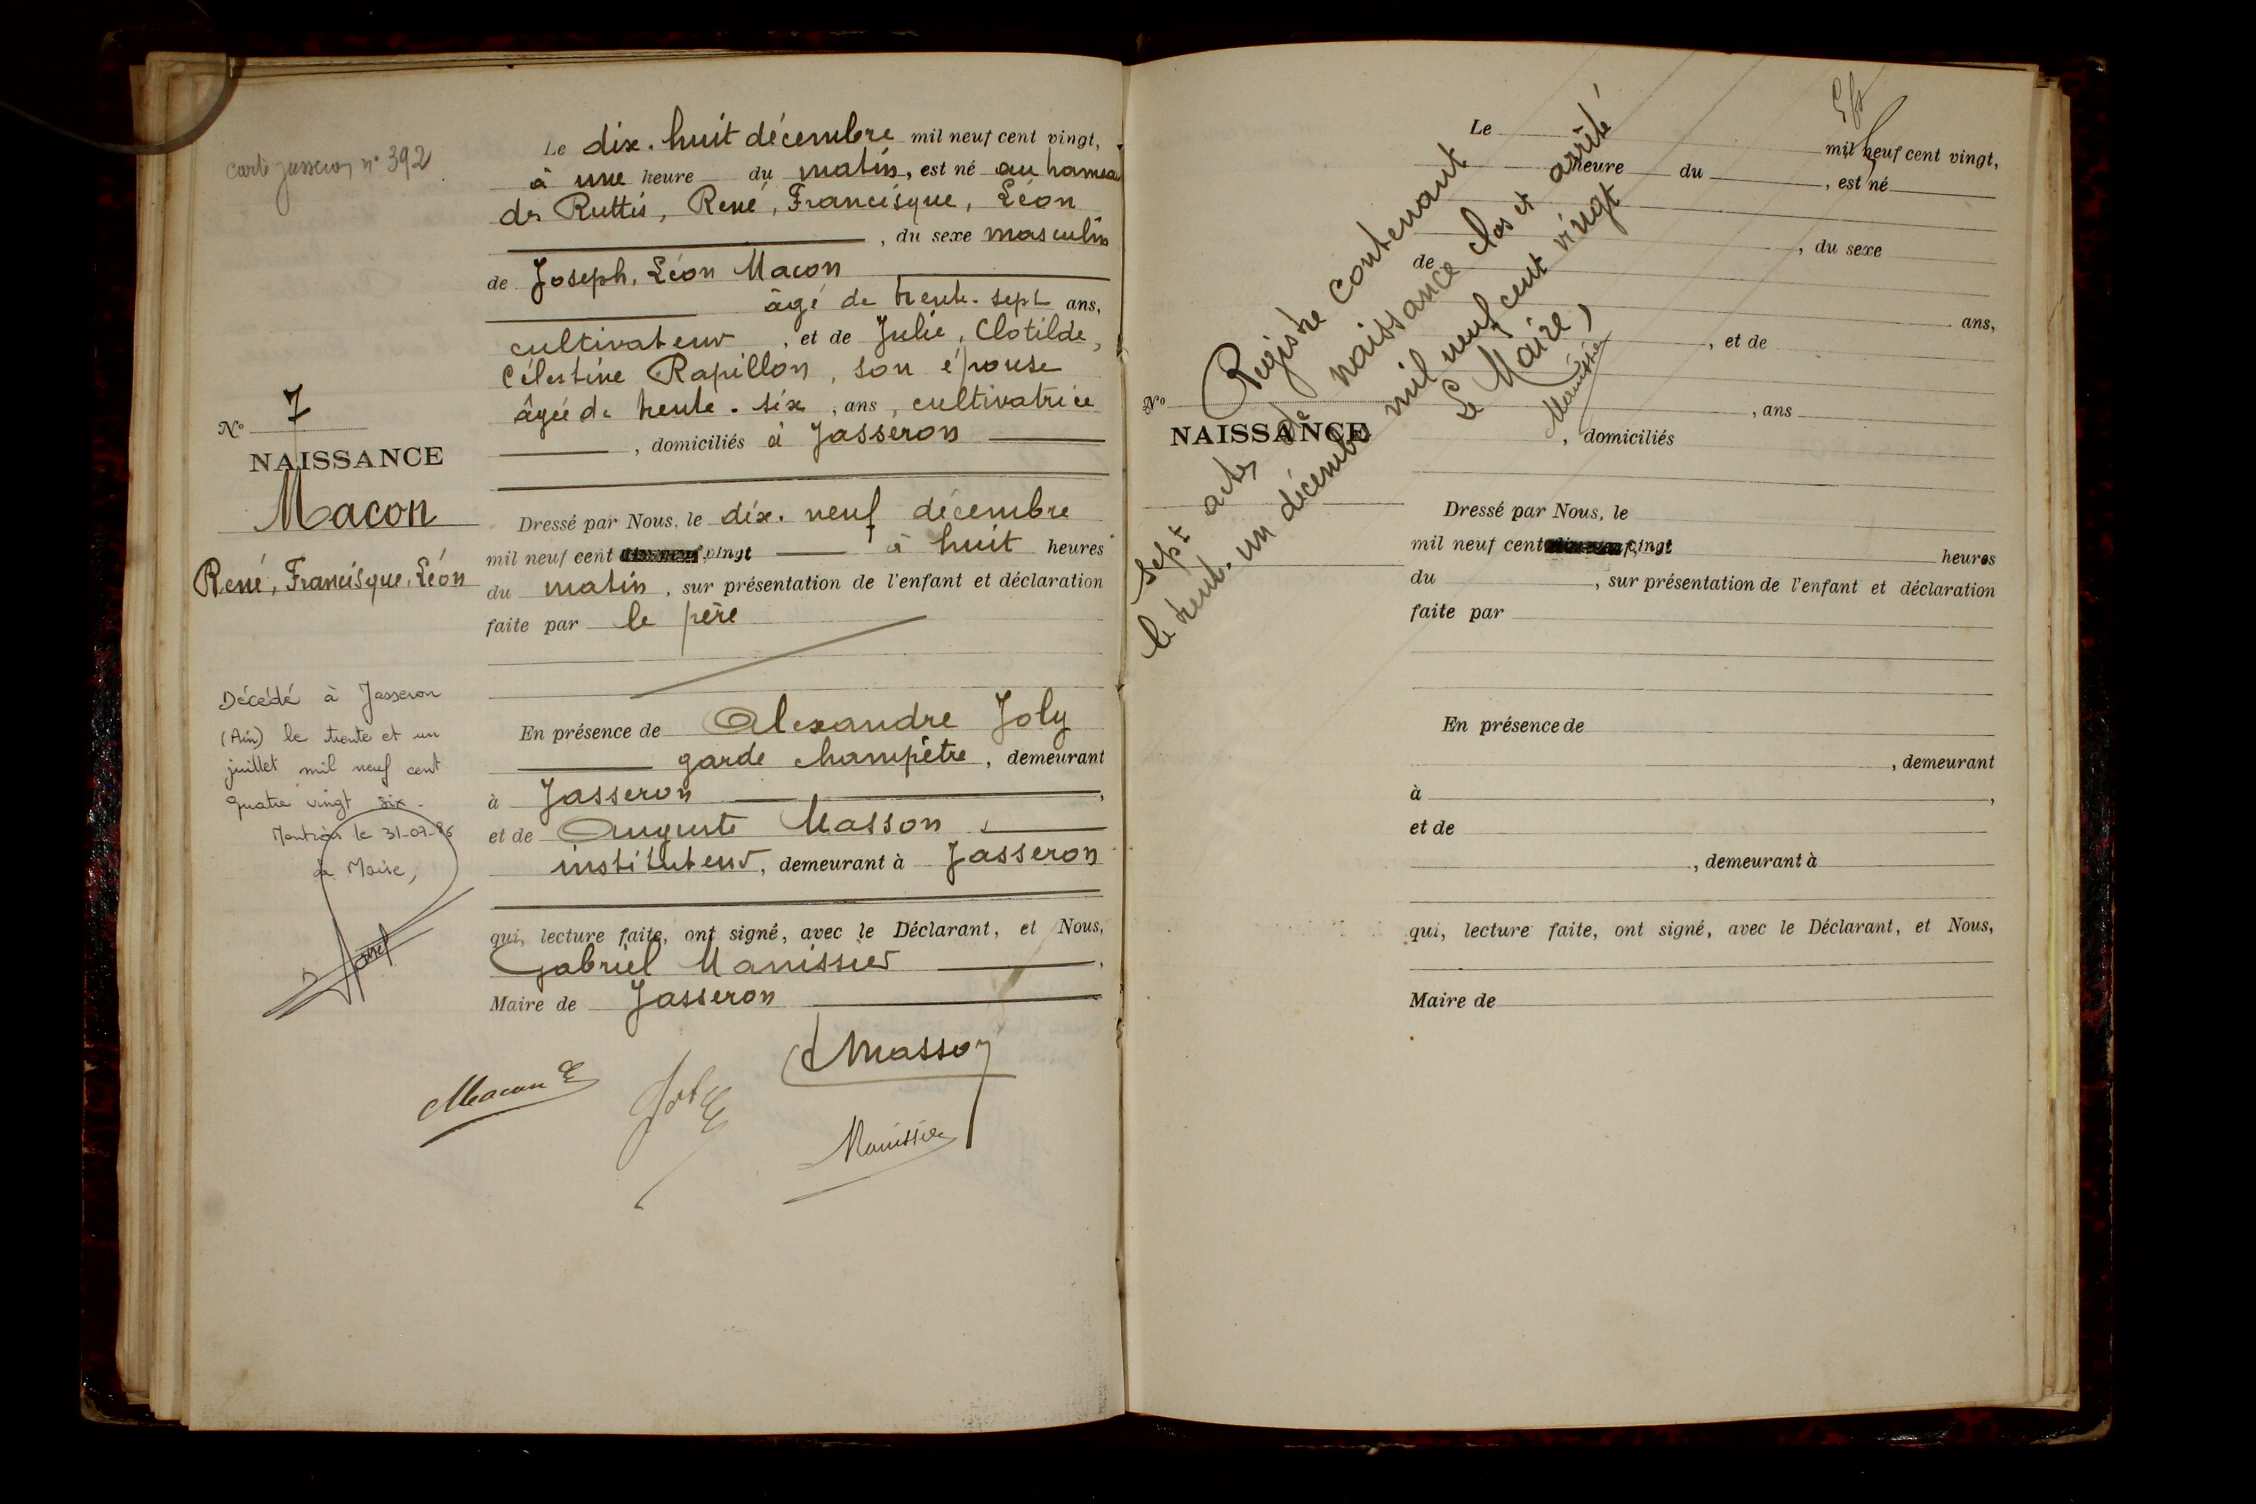 carte Jasseron n° 392
Le dix-huit décembre mil neuf cent vingt,
à une heure du matin, est né au hameau
des Ruttis, René, Francisque, Léon
, du sexe masculin
de Joseph, Léon Macon
âgé de trente-sept ans,
cultivateur, et de Julie, Clotilde,
Célestine Rapillon, son épouse
âgée de trente-six, ans, cultivatrice
, domiciliés à Jasseron
N° 7
NAISSANCE
Macon
René, Francisque, Léon
Dressé par Nous, le dix-neuf décembre
mil neuf cent vingt à huit heures
du matin, sur présentation de l'enfant et déclaration
faite par le père
Décédé à Jasseron
(Ain) le trente et un
juillet mil neuf cent
quatre vingt six.
Mention le 31-07-86
Le Maire,
En présence de Alexandre Joly
garde champêtre, demeurant
à Jasseron,
et de Auguste Masson,
instituteur, demeurant à Jasseron
qui, lecture faite, ont signé, avec le Déclarant, et Nous,
Gabriel Manissier,
Maire de Jasseron
Macon
Joly
Masson
Manissier
Registre contenant
sept actes de naissance clos et arrêté
le trente-un décembre mil neuf cent vingt
Le Maire,
Manissier
Le mil neuf cent vingt,
heure du , est né
, du sexe
de
ans,
, et de
, ans
, domiciliés
N°
NAISSANCE
Dressé par Nous, le
mil neuf cent vingt heures
du , sur présentation de l'enfant et déclaration
faite par
En présence de
, demeurant
à ,
et de
, demeurant à
qui, lecture faite, ont signé, avec le Déclarant, et Nous,
Maire de